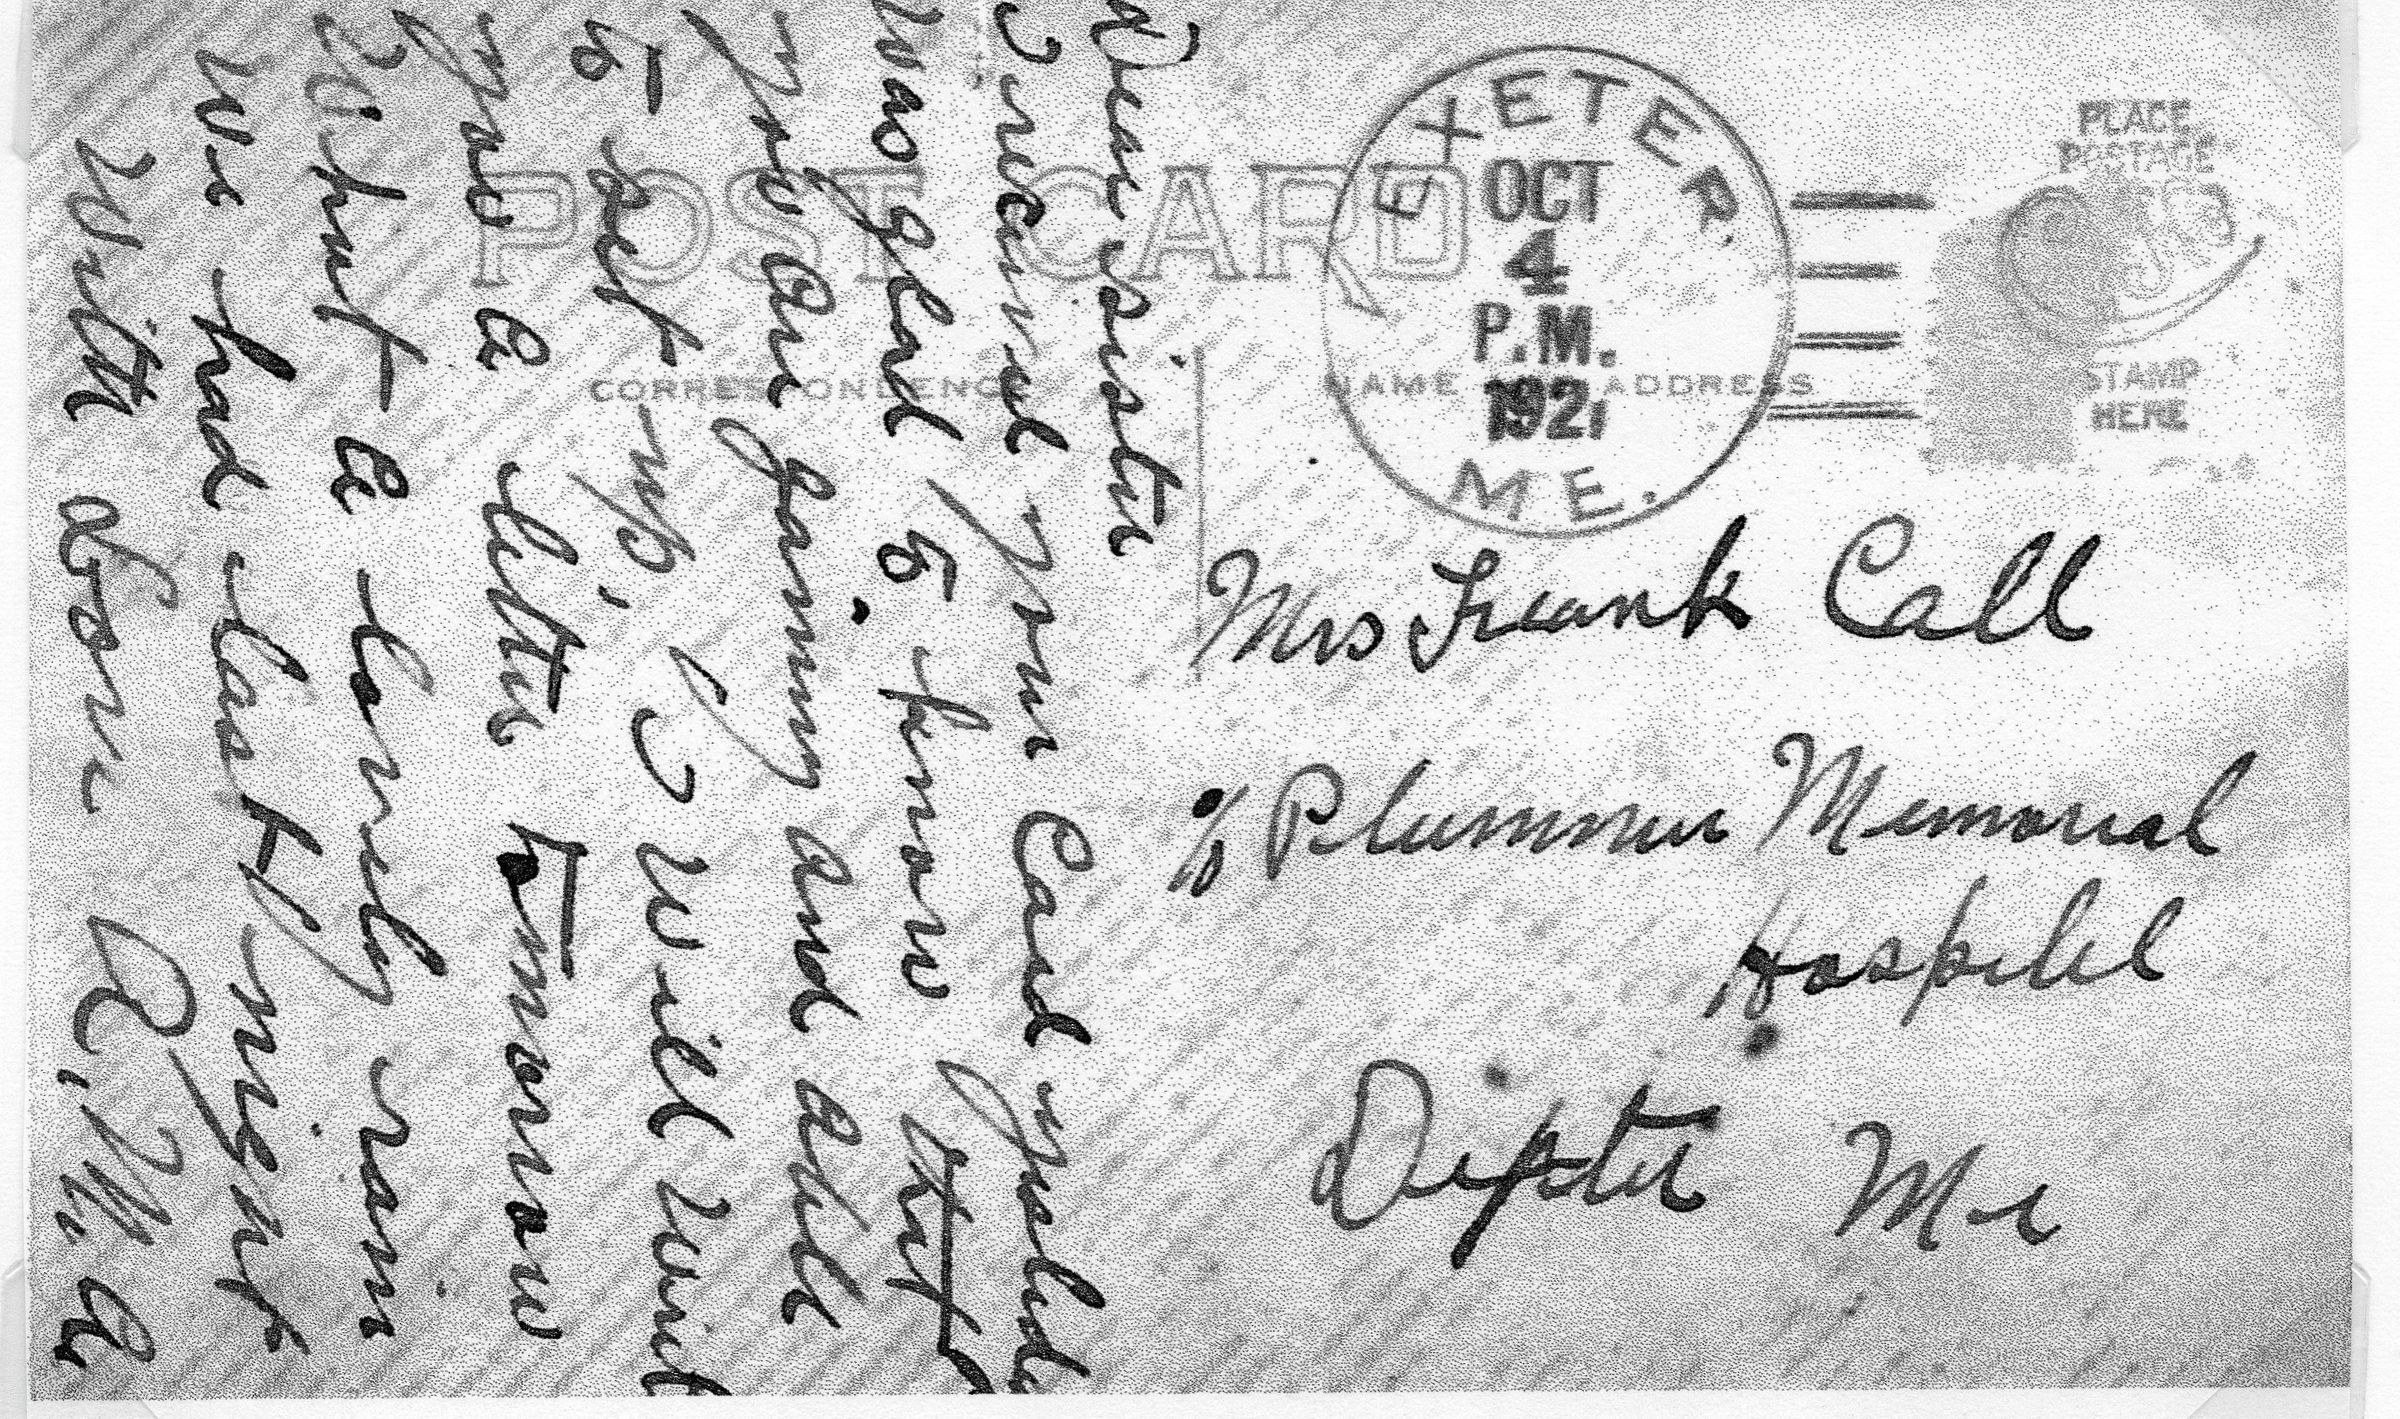 POST CARD
CORRESPONDENCE
NAME ADDRESS
EXETER.
OCT
4
P.M.
1921
ME.
PLACE
POSTAGE
STAMP
HERE
Mrs Frank Call
% Plummer Memorial
Hospitel
Dexter Me
Dear sister
I received your Card yesterday
was glad to know that
you are gaining and able
to set up, I will write
you a letter tomorrow
What a lovely rain
we had last night
With love R. M. A